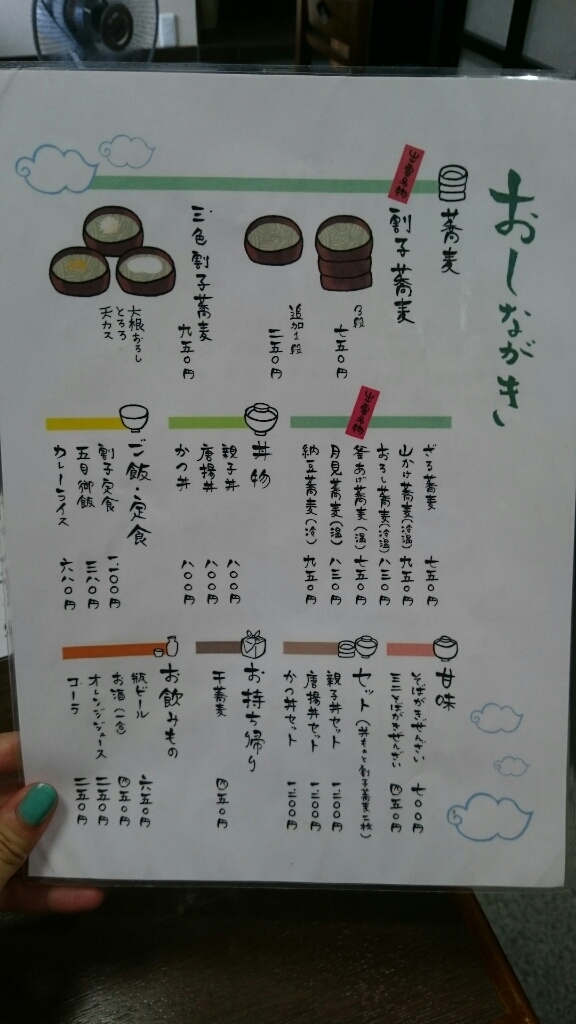 おしながき
蕎麦
出雲名物
割子蕎麦
3段
七五〇円
追加1段
二五〇円
三色割子蕎麦
九五〇円
大根おろし
とろろ
天カス
出雲名物
ざる蕎麦 七五〇円
山かけ蕎麦(冷温) 九五〇円
おろし蕎麦(冷温) 八三〇円
釜あげ蕎麦(温) 七五〇円
月見蕎麦(温) 八三〇円
納豆蕎麦(冷) 九五〇円
丼物
親子丼 八〇〇円
唐揚丼 八〇〇円
かつ丼 八〇〇円
ご飯・定食
割子定食 一、二〇〇円
五目御飯 三八〇円
カレーライス 六八〇円
甘味
そばがきぜんざい 七〇〇円
ミニそばがきぜんざい 四五〇円
セット(丼ものと割子蕎麦二枚)
親子丼セット 一、二〇〇円
唐揚丼セット 一、二〇〇円
かつ丼セット 一、二〇〇円
お持ち帰り
干蕎麦 四五〇円
お飲みもの
瓶ビール 六五〇円
お酒(一合) 四五〇円
オレンジジュース 二五〇円
コーラ 二五〇円